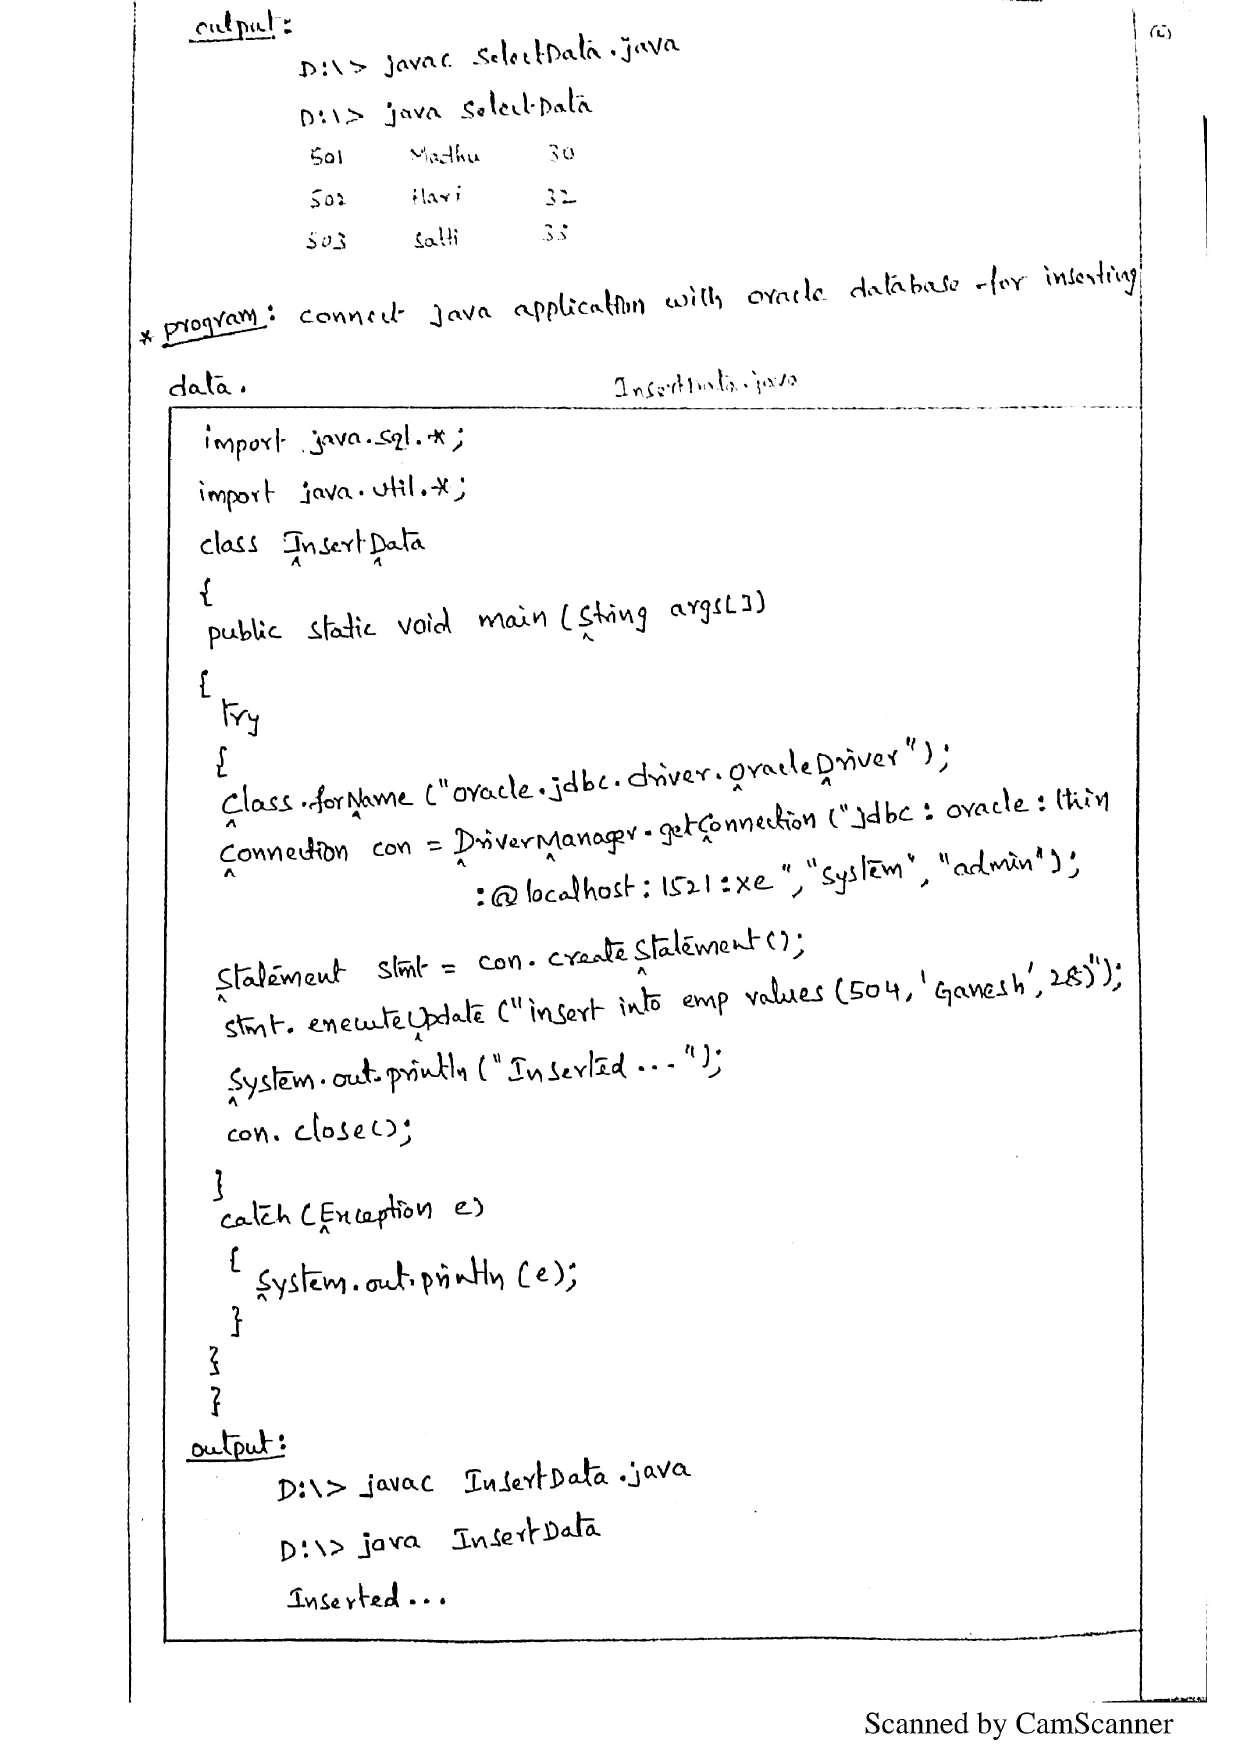 output:
D:\> javac SelectData.java
D:\> java SelectData
501 Madhu 30
502 Hari 32
503 Satti 33
* program: connect java application with oracle database for inserting
data. InsertData.java
import java.sql.*;
import java.util.*;
class InsertData
{
public static void main (String args[])
{
try
{
Class.forName ("oracle.jdbc.driver.OracleDriver");
Connection con = DriverManager.getConnection ("jdbc : oracle : thin
:@localhost : 1521 : xe ", "system", "admin");
Statement stmt = con. createStatement();
stmt. executeUpdate ("insert into emp values (504, 'Ganesh', 28)");
System.out.println ("Inserted ... ");
con. close();
}
catch (Exception e)
{
System.out.println (e);
}
}
}
output:
D:\> javac InsertData.java
D:\> java InsertData
Inserted ...
Scanned by CamScanner